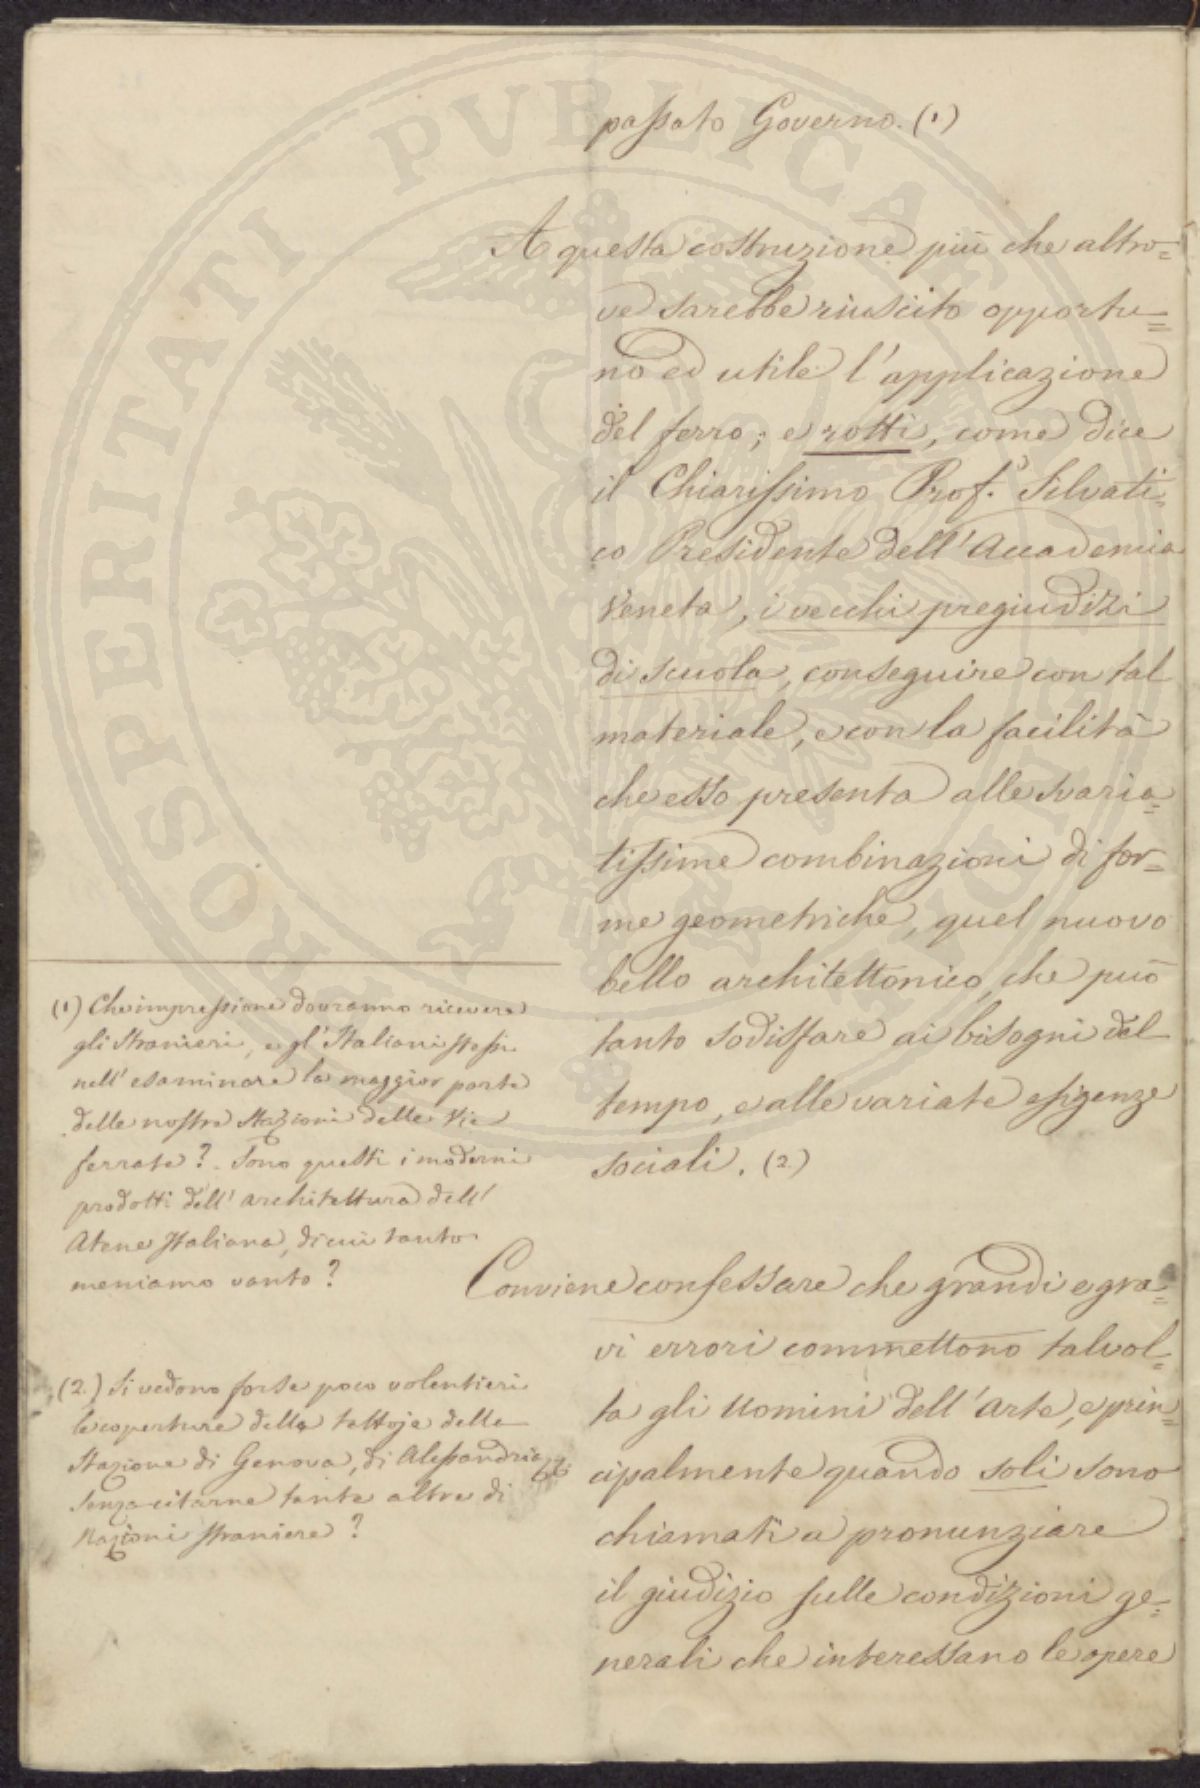 passato Governo. (1)
A questa costruzione più che altro=
ve sarebbe riuscito opportu=
no ed utile l'applicazione
del ferro; e rotti, come dice
il Chiarissimo Prof. Silvati=
co Presidente dell'Accademia
Veneta, i vecchi pregiudizi
di scuola, conseguire con tal
materiale, e con la facilità
che esso presenta alle svaria=
tissime combinazioni di for=
me geometriche, quel nuovo
bello architettonico, che può
tanto sodisfare ai bisogni del
tempo, e alle variate esigenze
sociali. (2)
Conviene confessare che grandi e gra=
vi errori commettono talvol=
ta gli uomini dell'arte, e prin=
cipalmente quando soli sono
chiamati a pronunziare
il giudizio sulle condizioni ge=
nerali che interessano le opere
(1) Che impressione dovranno ricevere
gli stranieri, e gl'Italiani stessi
nell'esaminare la maggior parte
delle nostre stazioni delle vie
ferrate? Sono questi i moderni
prodotti dell'architettura dell'
Atene Italiana, di cui tanto
meniamo vanto?
(2.) Si vedono forse poco volentieri
le coperture delle tettoje delle
Stazione di Genova, di Alessandria
senza citarne tante altre di
Nazioni straniere?
PROSPERITATI PUBLICAE